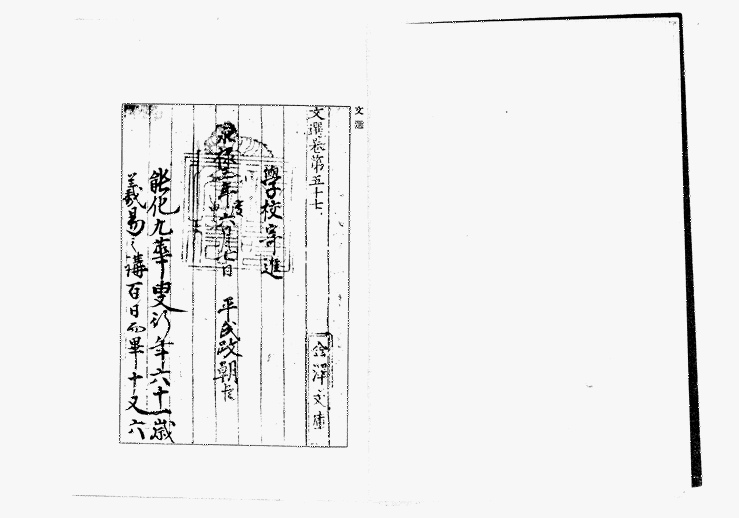 文選
文選卷第五十七
金澤文庫
學校寄進
永祿三年六月七日 平氏政朝臣
能化九華叟行年六十一歲
羲易之講百日而畢十又六